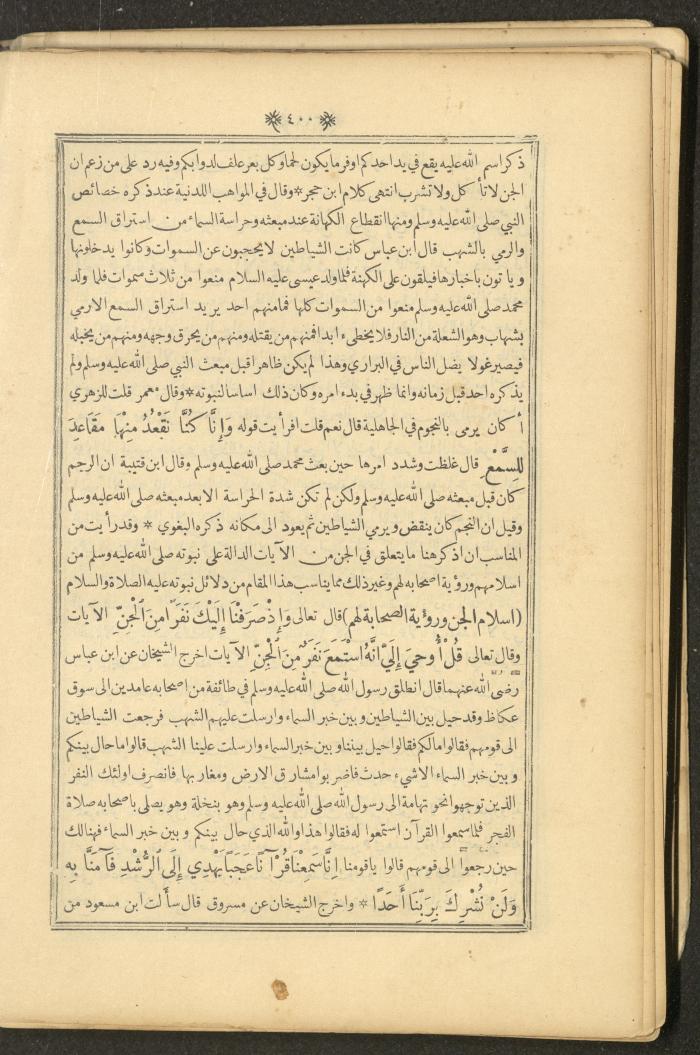 ٤٠٠
ذكر اسم الله عليه يقع في يد احدكم اوفر ما يكون لحما وكل بعر علف لدوابكم وفيه رد على من زعم ان
الجن لا تأكل ولا تشرب انتهى كلام ابن حجر * وقال في المواهب اللدنية عند ذكره خصائص
النبي صلى الله عليه وسلم ومنها انقطاع الكهانة عند مبعثه وحراسة السماء من استراق السمع
والرمي بالشهب قال ابن عباس كانت الشياطين لا يحجبون عن السموات وكانوا يدخلونها
ويأتون باخبارها فيلقون على الكهنة فلما ولد عيسى عليه السلام منعوا من ثلاث سموات فلما ولد
محمد صلى الله عليه وسلم منعوا من السموات كلها فما منهم احد يريد استراق السمع الا رمي
بشهاب وهو الشعلة من النار فلا يخطىء ابدا فمنهم من يقتله ومنهم من يحرق وجهه ومنهم من يخبله
فيصير غولا يضل الناس في البراري وهذا لم يكن ظاهرا قبل مبعث النبي صلى الله عليه وسلم ولم
يذكره احد قبل زمانه وانما ظهر في بدء امره وكان ذلك اساسا لنبوته * وقال معمر قلت للزهري
أكان يرمى بالنجوم في الجاهلية قال نعم قلت افرأيت قوله وَإِنَّا كُنَّا نَقْعُدُ مِنْهَا مَقَاعِدَ
لِلسَّمْعِ قال غلظت وشدد امرها حين بعث محمد صلى الله عليه وسلم وقال ابن قتيبة ان الرجم
كان قبل مبعثه صلى الله عليه وسلم ولكن لم تكن شدة الحراسة الا بعد مبعثه صلى الله عليه وسلم
وقيل ان النجم كان ينقض ويرمي الشياطين ثم يعود الى مكانه ذكره البغوي * وقد رأيت من
المناسب ان اذكر هنا ما يتعلق في الجن من الآيات الدالة على نبوته صلى الله عليه وسلم من
اسلامهم ورؤية اصحابه لهم وغير ذلك مما يناسب هذا المقام من دلائل نبوته عليه الصلاة والسلام
(اسلام الجن ورؤية الصحابة لهم) قال تعالى وَإِذْ صَرَفْنَا إِلَيْكَ نَفَرًا مِنَ الْجِنِّ الآيات
وقال تعالى قُلْ أُوحِيَ إِلَيَّ أَنَّهُ اسْتَمَعَ نَفَرٌ مِنَ الْجِنِّ الآيات اخرج الشيخان عن ابن عباس
رضي الله عنهما قال انطلق رسول الله صلى الله عليه وسلم في طائفة من اصحابه عامدين الى سوق
عكاظ وقد حيل بين الشياطين وبين خبر السماء وارسلت عليهم الشهب فرجعت الشياطين
الى قومهم فقالوا مالكم فقالوا حيل بيننا وبين خبر السماء وارسلت علينا الشهب قالوا ما حال بينكم
وبين خبر السماء الا شيء حدث فاضربوا مشارق الارض ومغاربها فانصرف اولئك النفر
الذين توجهوا نحو تهامة الى رسول الله صلى الله عليه وسلم وهو بنخلة وهو يصلي باصحابه صلاة
الفجر فلما سمعوا القرآن استمعوا له فقالوا هذا والله الذي حال بينكم وبين خبر السماء فهنالك
حين رجعوا الى قومهم قالوا يا قومنا إِنَّا سَمِعْنَا قُرْآنًا عَجَبًا يَهْدِي إِلَى الرُّشْدِ فَآمَنَّا بِهِ
وَلَنْ نُشْرِكَ بِرَبِّنَا أَحَدًا * واخرج الشيخان عن مسروق قال سألت ابن مسعود من